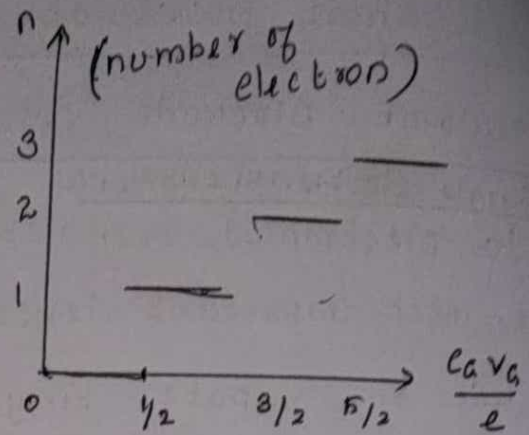 n
(number of
electron)
3
2
1
0 1/2 3/2 5/2
C_G V_G
e